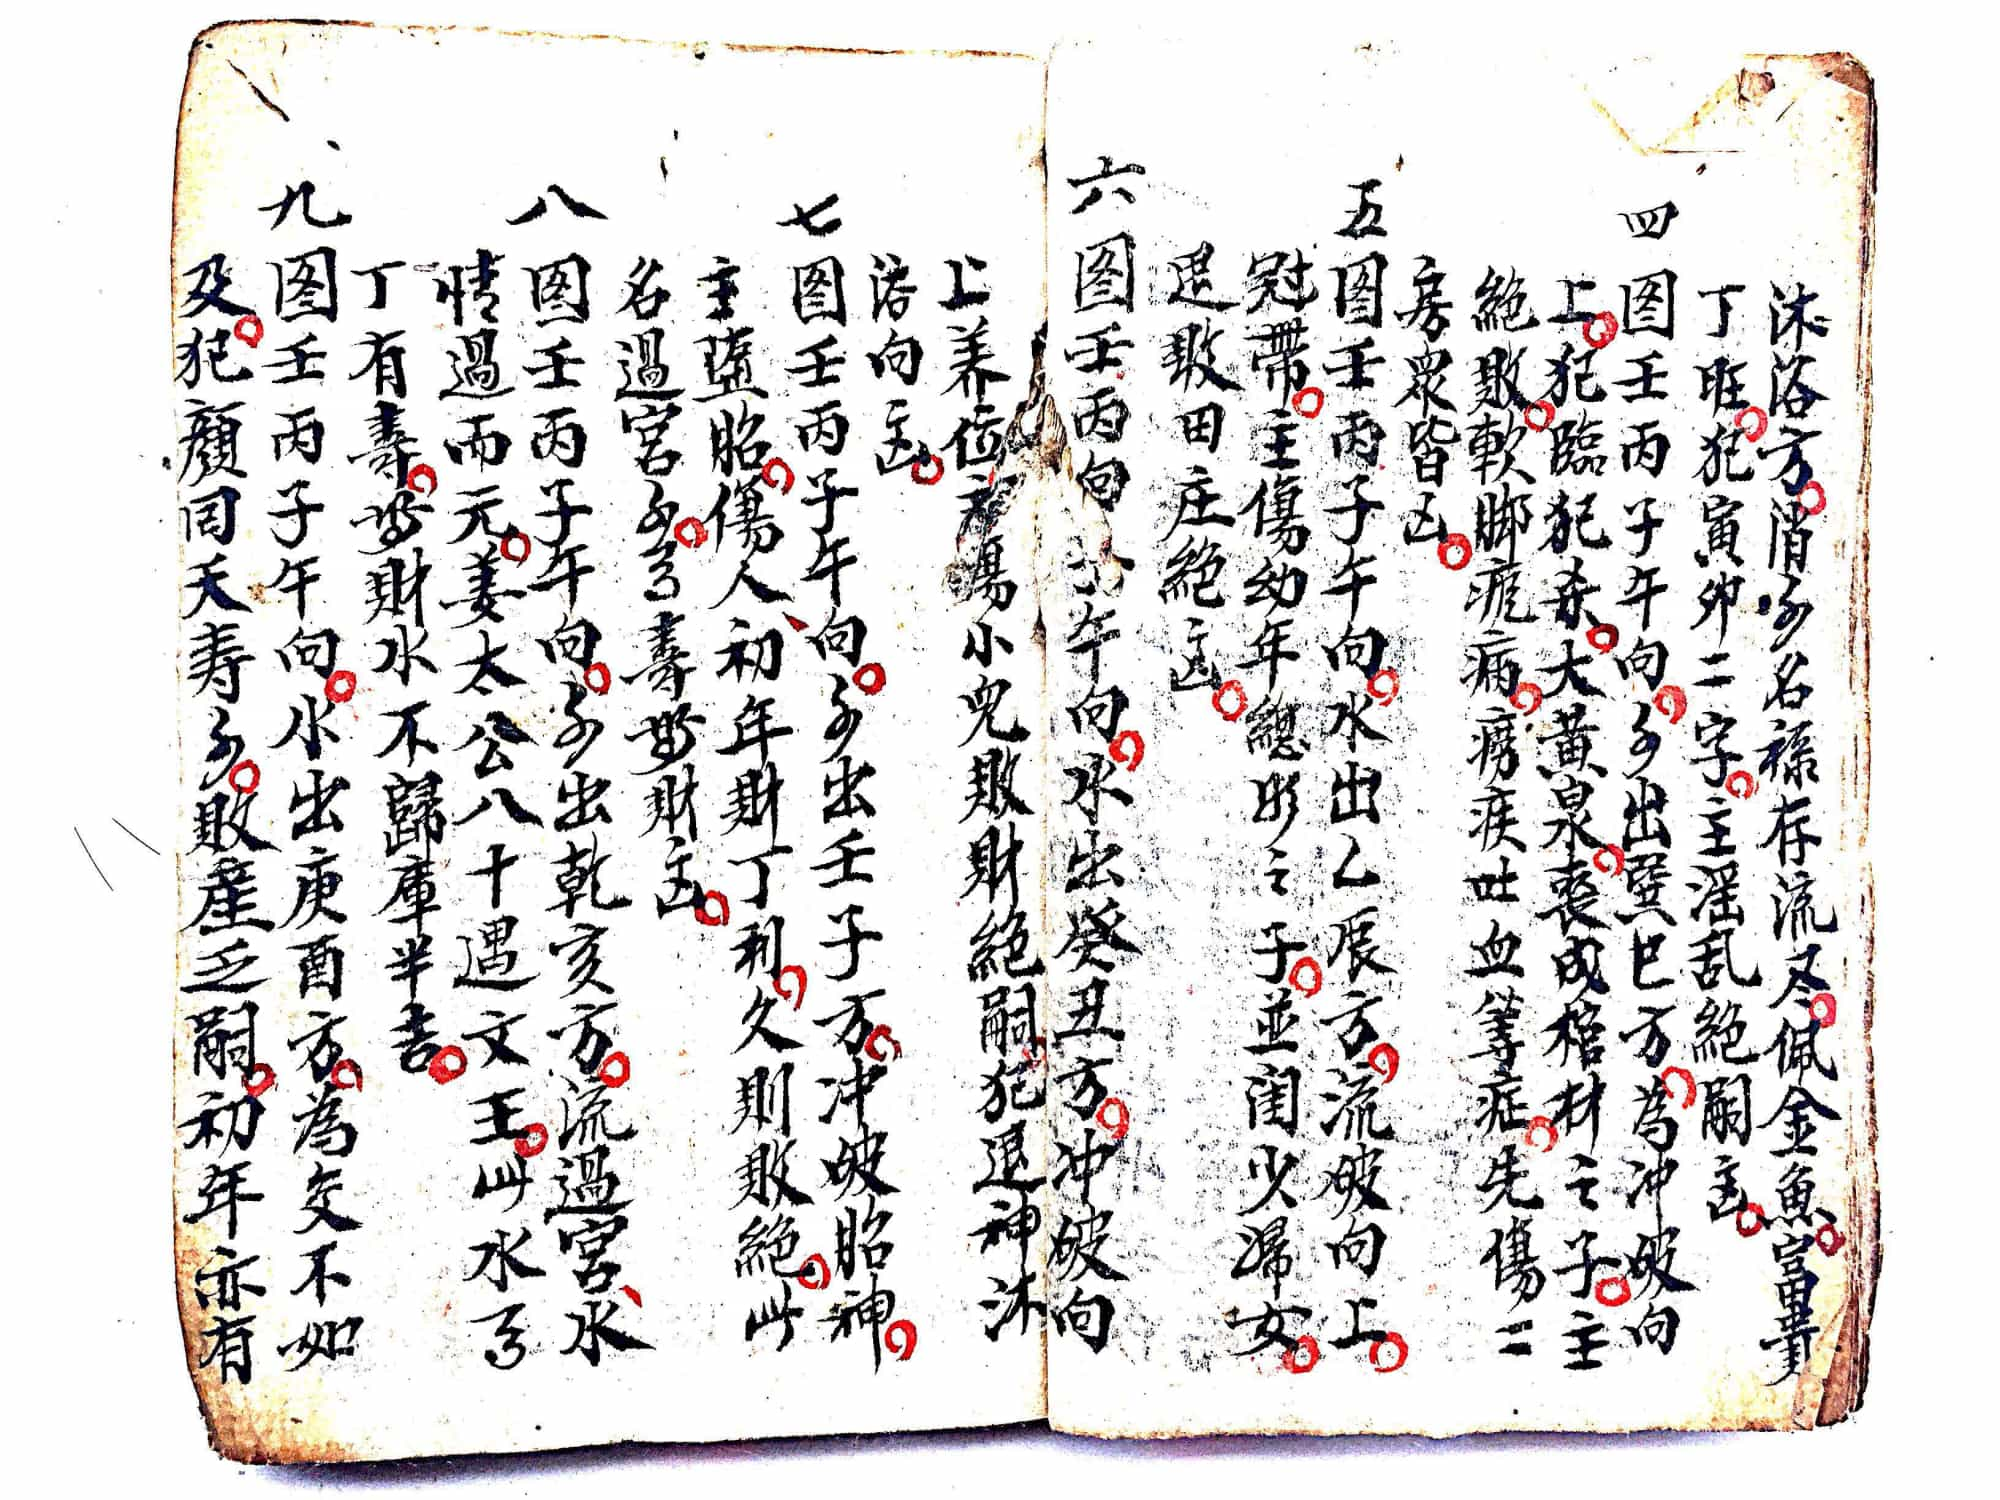 沐浴方。消水名禄存流尽。佩金魚。富貴
丁旺。犯寅卯二字。主淫乱絕嗣。凶。
四 图壬丙子午向。水出巽巳方。為冲破向
上。犯臨犯杀。大黄泉。喪成棺材之子。主
絕敗。軟脚疯病。痨疾吐血等症。先傷二
房眾皆凶。
五 图壬丙子午向。水出乙辰方。流破向上。
冠帶。主傷幼年聪明之子。並闺少婦女。
退敗田庄絕凶。
六 图壬丙向 午向。水出癸丑方。冲破向
上养位 傷小兒敗財絕嗣。犯退神沐
浴向凶。
七 图壬丙子午向。水出壬子方。冲破胎神。
主墮胎。傷人、初年財丁利。久則敗絕。此
名過宮水。亏壽 財凶。
八 图壬丙子午向。水出乾亥方。流過宮、水
情過而元。姜太公八十遇文王。此水亏
丁有壽。 財水不歸庫半吉。
九 图壬丙子午向。水出庚酉方。為交不如
及。犯顏回夭壽水。敗産乏嗣。初年亦有